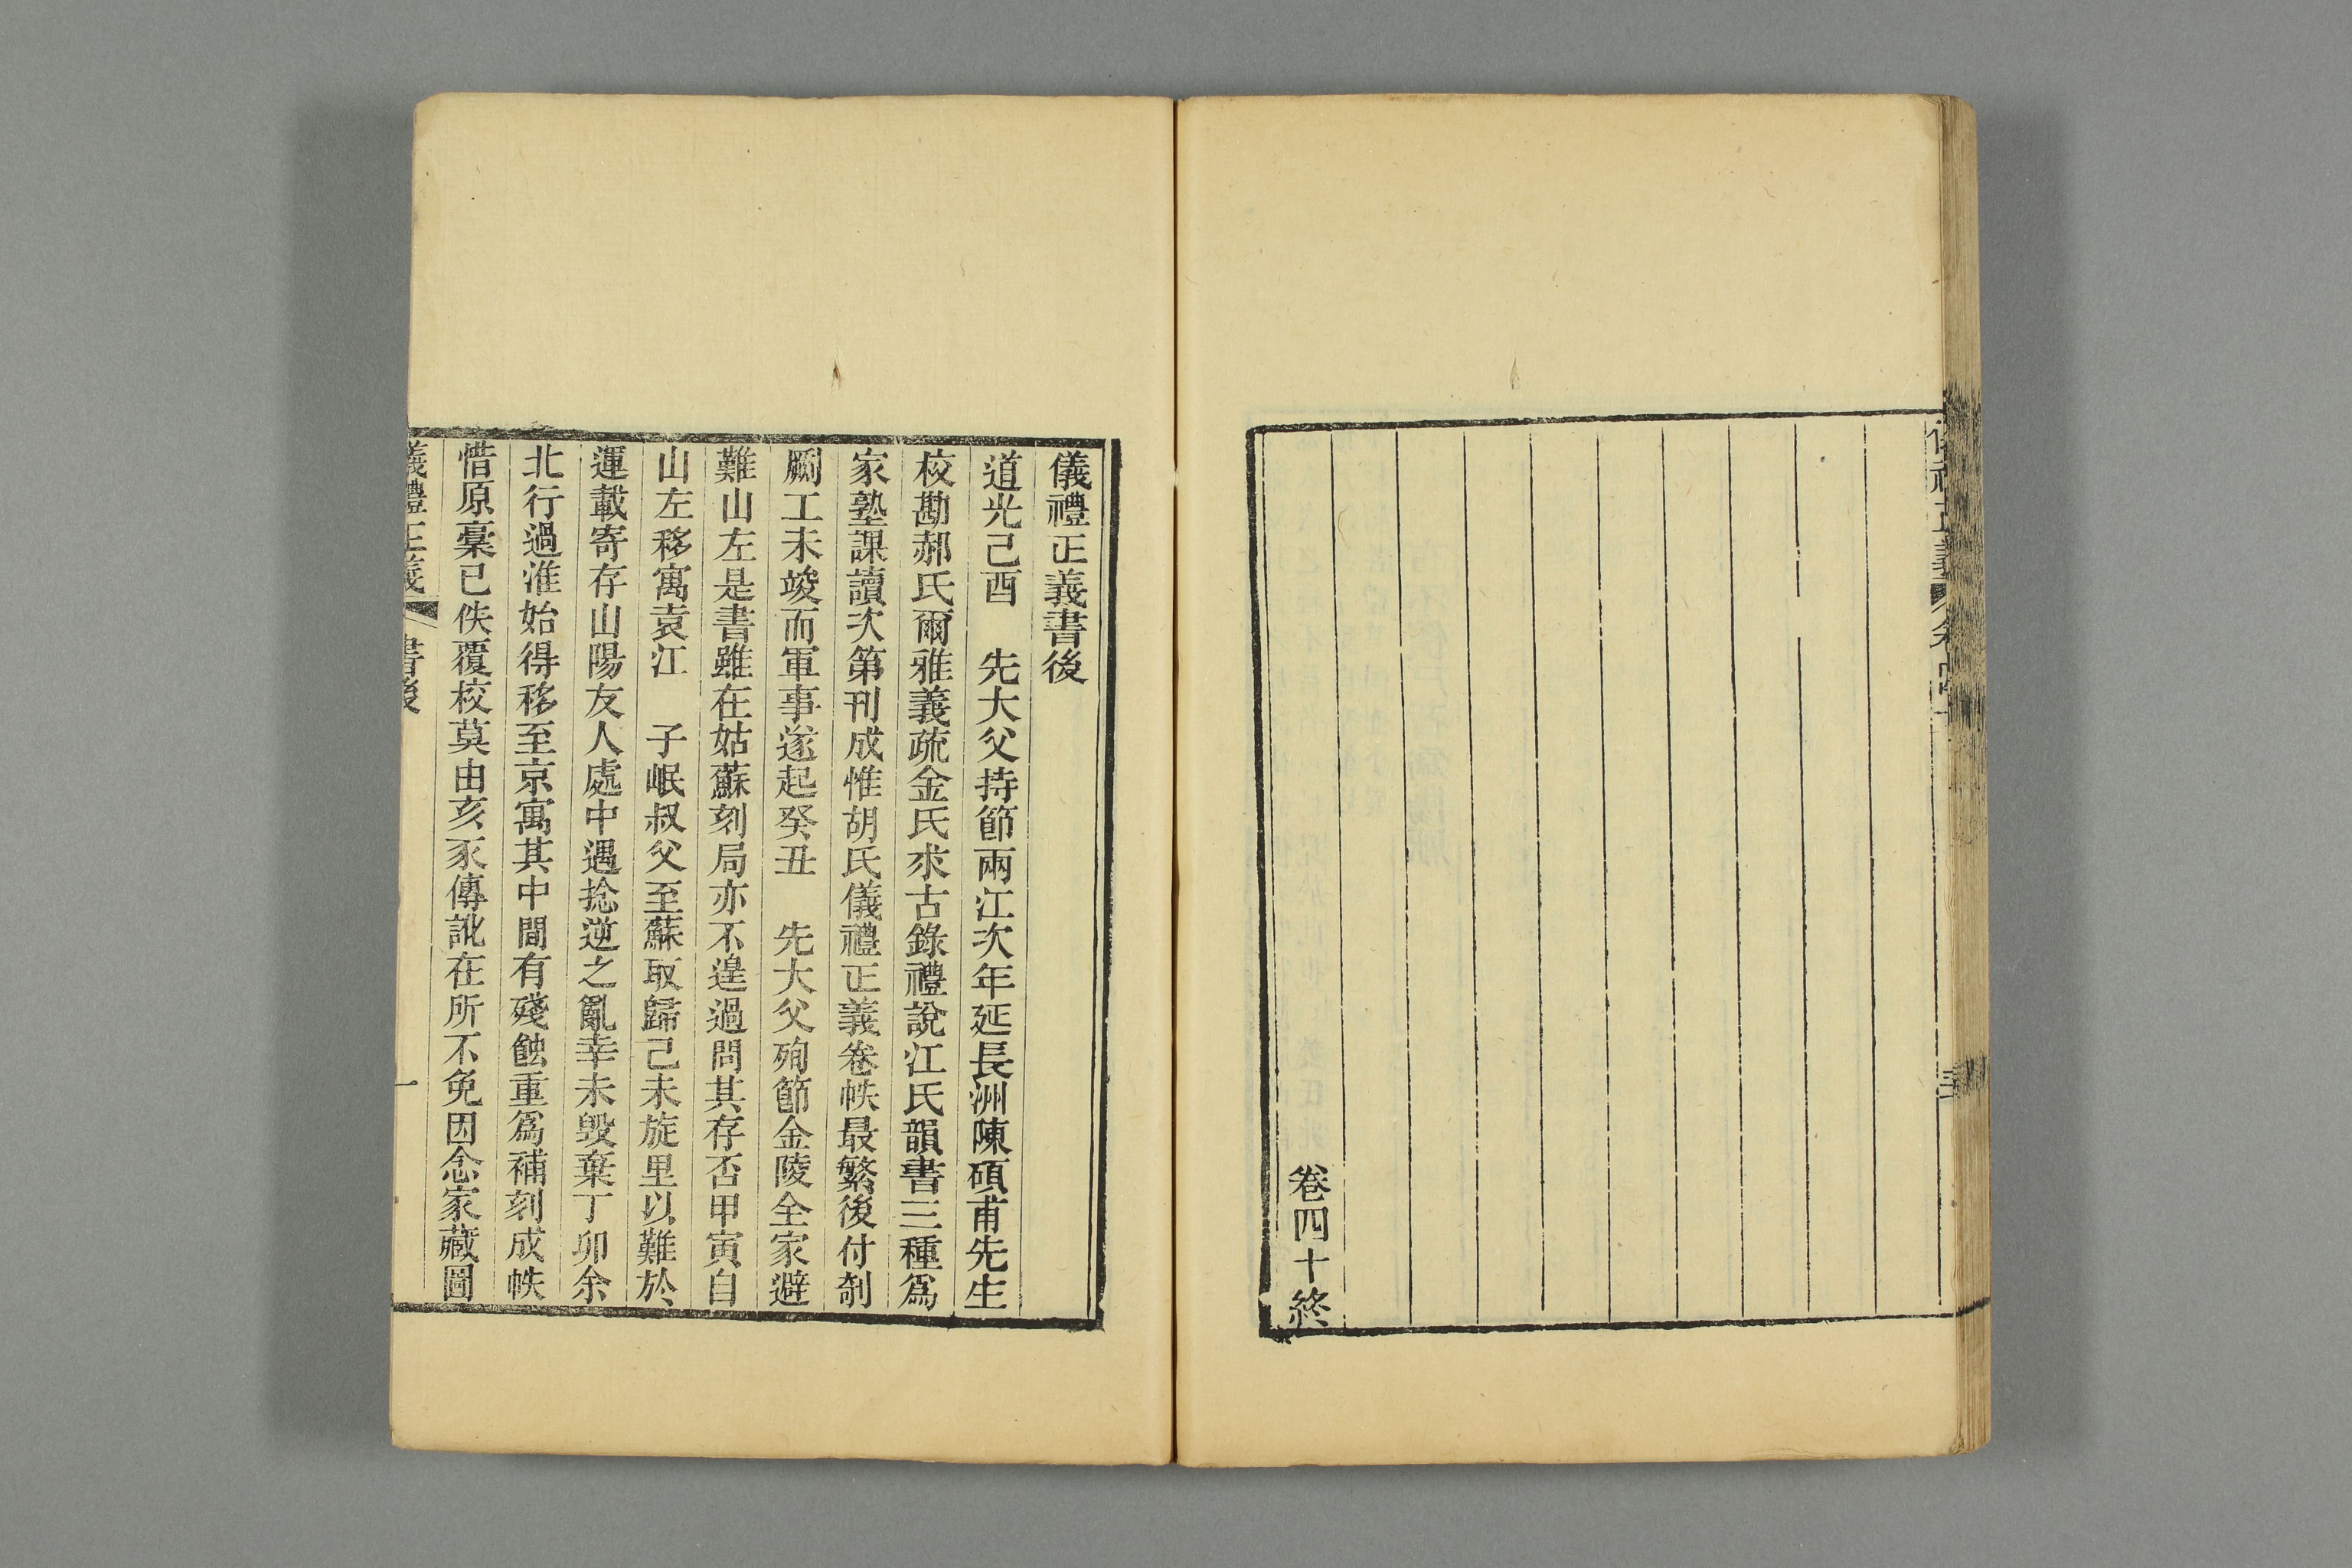 卷四十終
儀禮正義書後
道光己酉　先大父持節兩江次年延長洲陳碩甫先生
校勘郝氏爾雅義疏金氏求古錄禮說江氏韻書三種爲
家塾課讀次第刊成惟胡氏儀禮正義卷帙最繁後付剞
劂工未竣而軍事遂起癸丑　先大父殉節金陵全家避
難山左是書雖在姑蘇刻局亦不遑過問其存否甲寅自
山左移寓袁江　子岷叔父至蘇取歸己未旋里以難於
運載寄存山陽友人處中遇捻逆之亂幸未毁棄丁卯余
北行過淮始得移至京寓其中間有殘蝕重爲補刻成帙
惜原稾已佚覆校莫由亥豕傳訛在所不免因念家藏圖
儀禮正義　書後　一